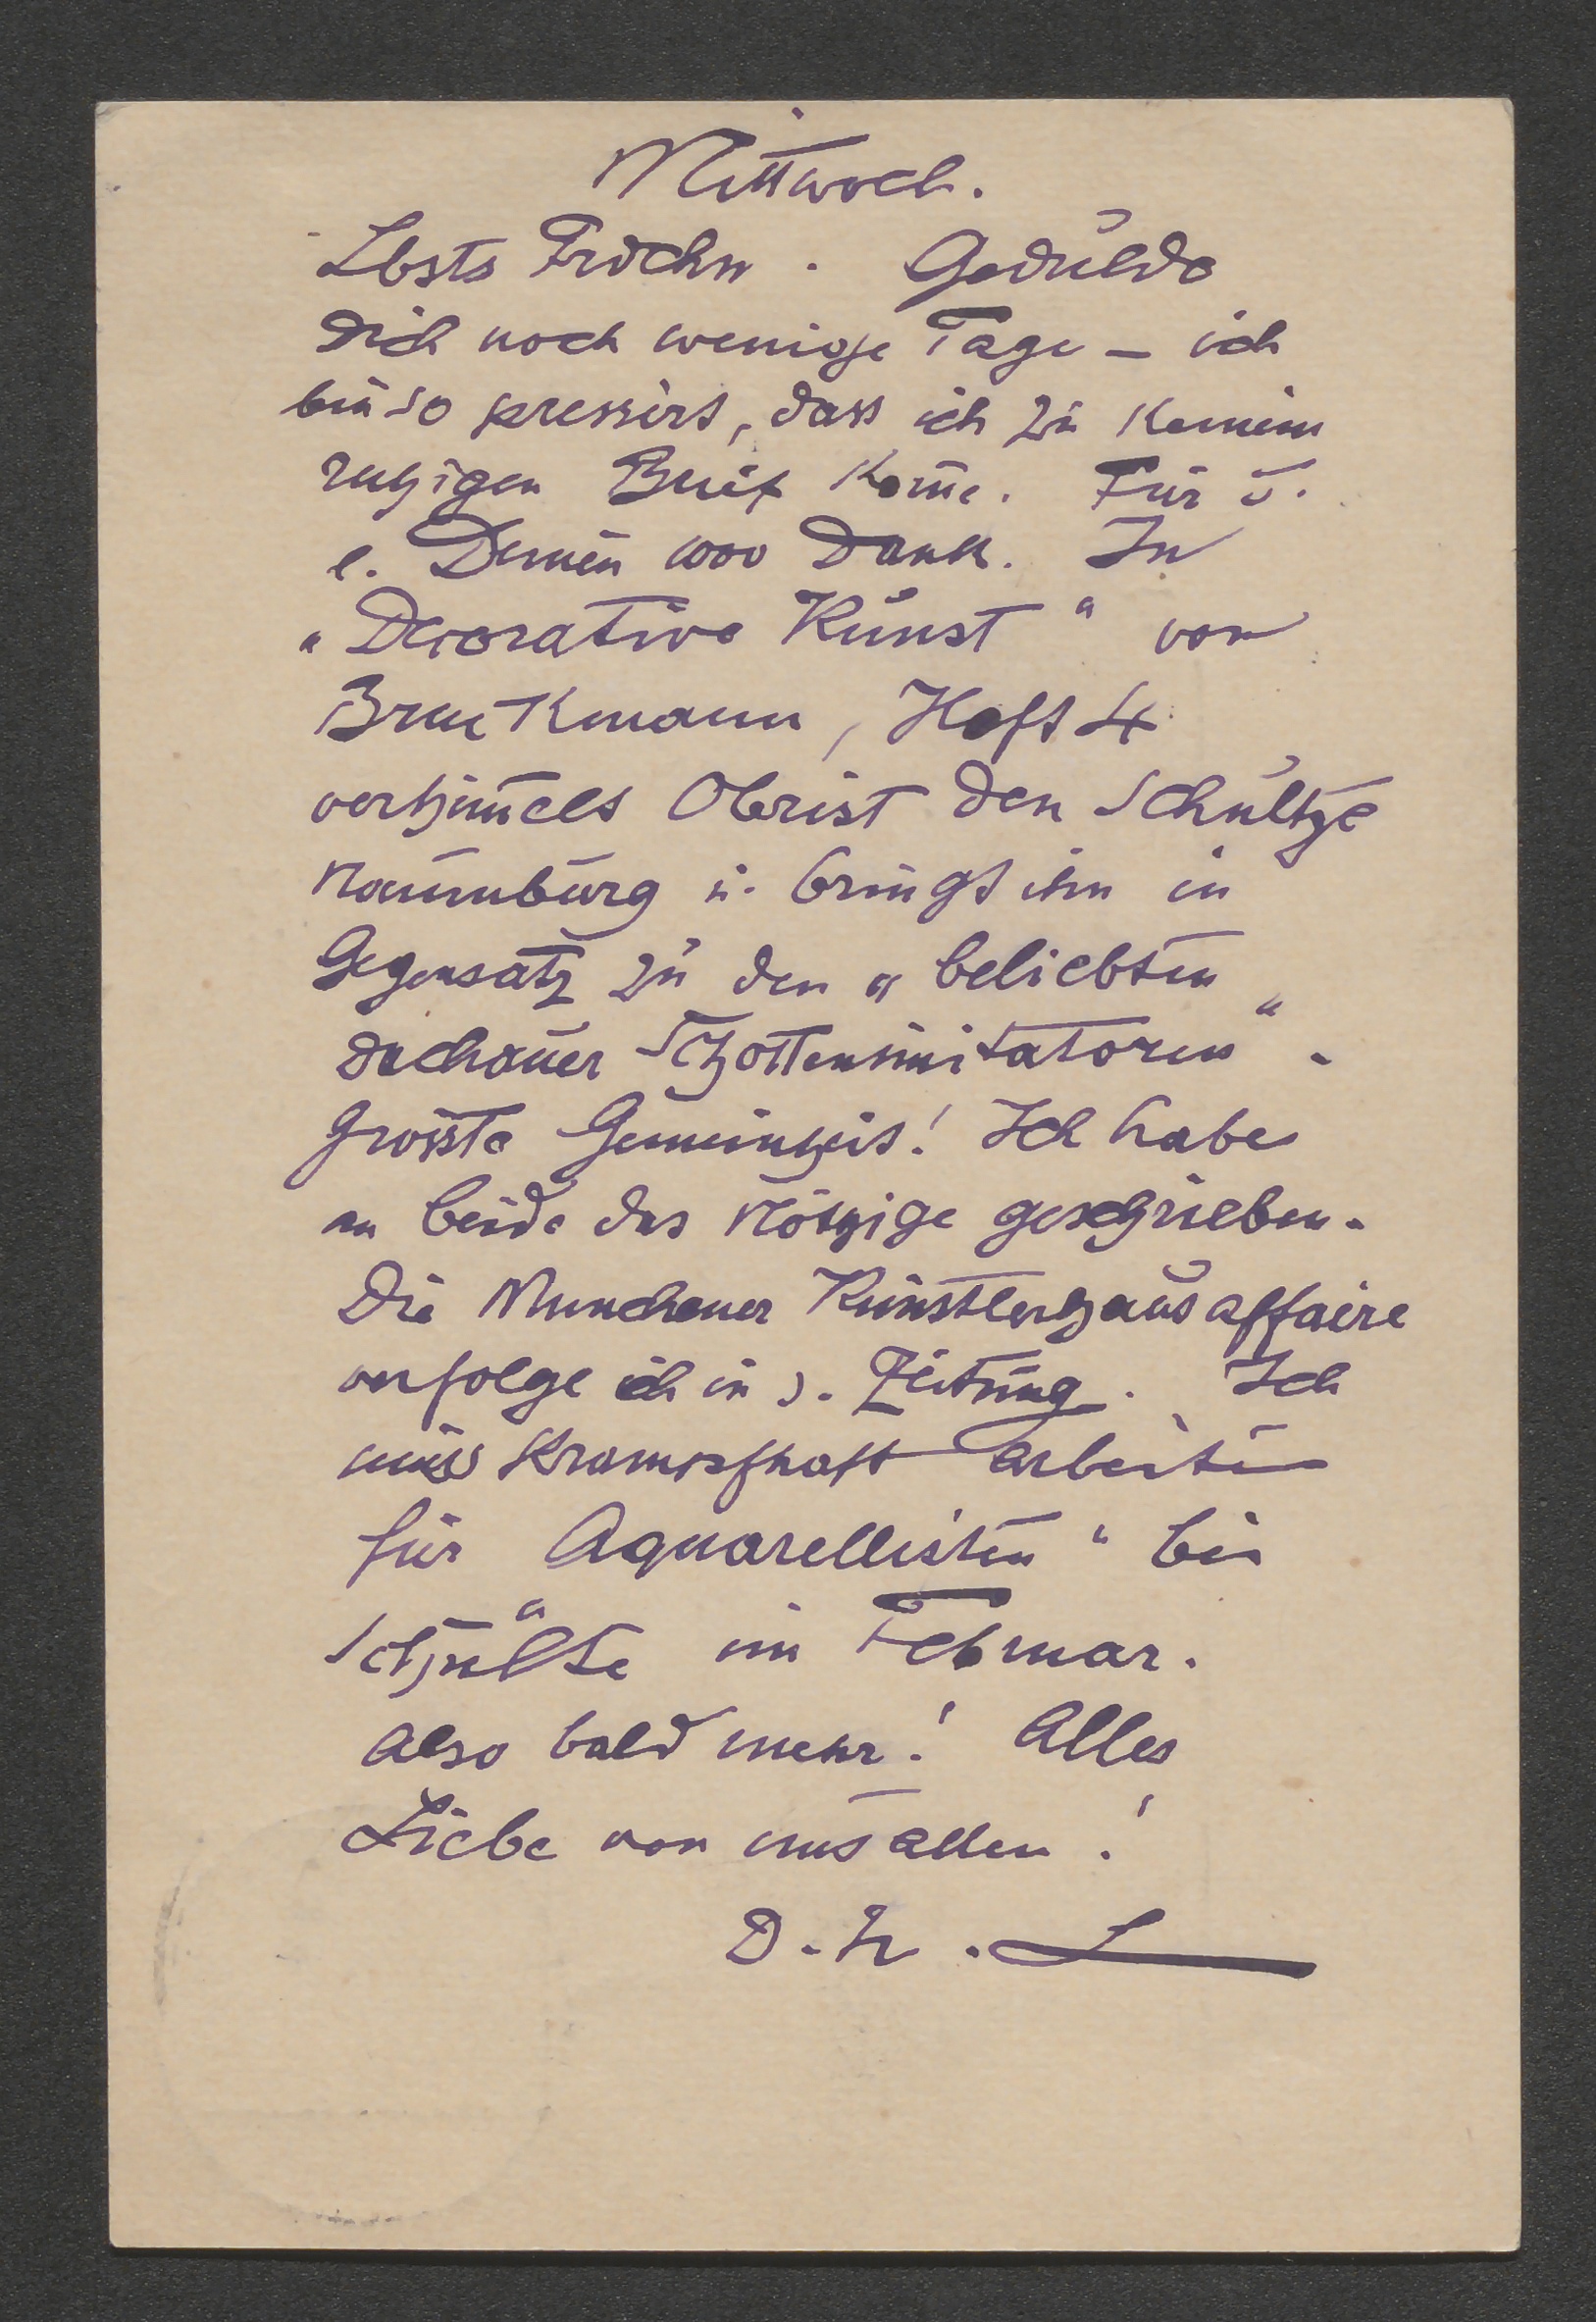 Mittwoch.
Lbsts Frdchn. Gedulde
Dich noch wenige Tage – ich
bin so pressirt, dass ich zu keinem
ruhigen Brief kom̄e. Für d.
l. Deinen 1000 Dank. In
„Decorative Kunst" von
Bruckmann, Heft 4
verhim̄elt Obrist den Schultze
Naumburg u. bringt ihn in
Gegensatz zu den „beliebten
dachauer Schottenimitatoren".
Grösste Gemeinheit! Ich habe
an beide das Nöthige geschrieben.
Die Munchener Künstlerhausaffaire
verfolge ich in d. Zeitung. Ich
muss krampfhaft arbeiten
für Aquarellisten" bei
Schulte im Februar.
Also bald mehr! Alles
Liebe von uns allen!
D. h.